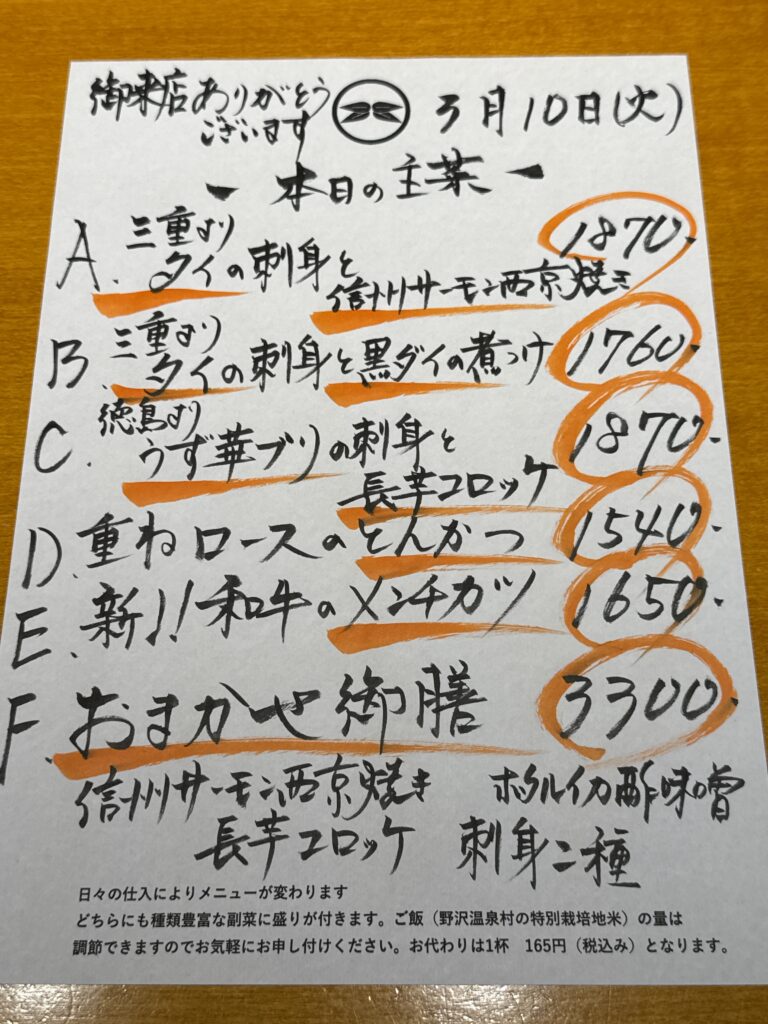 御来店ありがとう
ございます
3月10日(火)
本日の主菜
A. 三重より
タイの刺身と
信州サーモン西京焼き
1870.
B. 三重より
タイの刺身と黒ダイの煮つけ 1760.
C. 徳島より
うず華ブリの刺身と
長芋コロッケ
1870.
D. 重ねロースのとんかつ 1540.
E. 新!! 和牛のメンチカツ 1650.
F. おまかせ御膳 3300.
信州サーモン西京焼き ホタルイカ酢味噌
長芋コロッケ 刺身二種
日々の仕入によりメニューが変わります
どちらにも種類豊富な副菜に盛りが付きます。ご飯（野沢温泉村の特別栽培地米）の量は
調節できますのでお気軽にお申し付けください。お代わりは1杯 165円（税込み）となります。